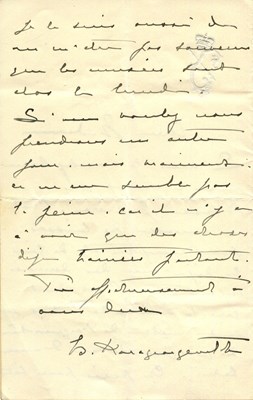 Je le suis aussi de
ne m'être pas souvenu
que les musées sont
clos le lundi.
Si vous voulez nous
prendrons un autre
jour. mais vraiment
ce ne me semble pas
la peine. car il n'y a
à voir que des choses
déjà trainées partout.
Très affectueusement à
vous deux
B. Karageorgevitch